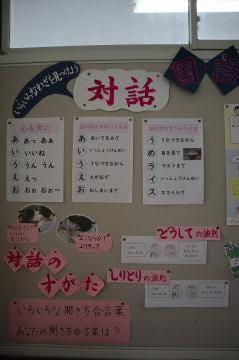 いろいろなわざを見つけよう
対話
国語
心を声に
あ あっ ああ
い いいね
う うんうん
え えっ
お おぉ おぉ～
あ あいてをみて
い いっしょうけんめい
う うなづきながら
え えがおで
お おしまいまで
う うなづきながら
め 目を見て
ラ ラストまで
イ いっしょうけんめい
ス スマイルで
対話の
すがた
どうしての法則
しりとりの法則
いろいろな聞き方合言葉
あなたの聞き方合言葉は？